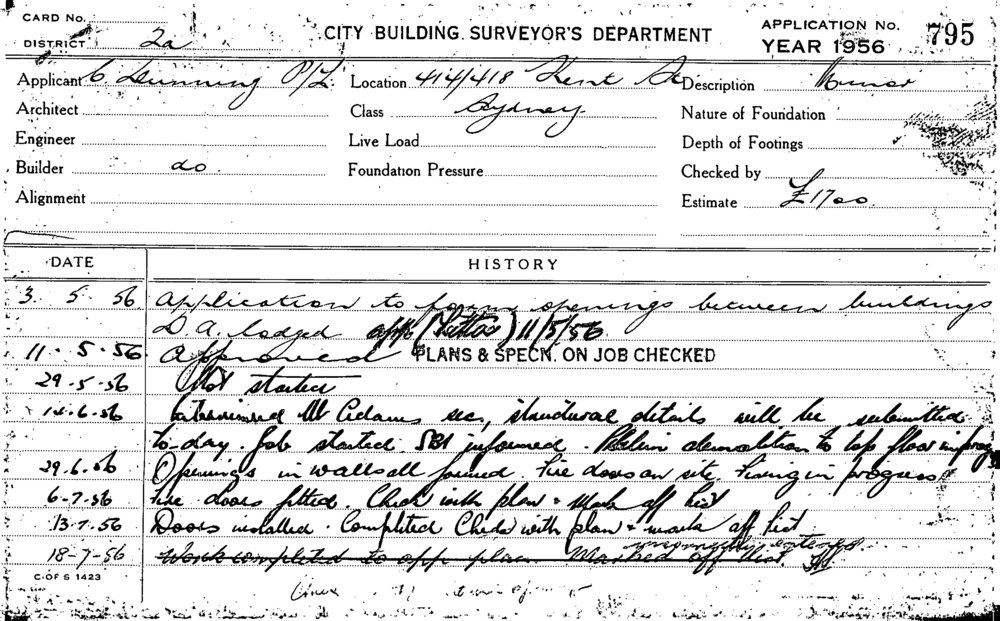 CARD No.
DISTRICT 2a
CITY BUILDING SURVEYOR'S DEPARTMENT
APPLICATION No. 795
YEAR 1956
Applicant C Dunning P/L Location 414/418 Kent St Description Minor
Architect Class Sydney Nature of Foundation
Engineer Live Load Depth of Footings
Builder do. Foundation Pressure Checked by
Alignment Estimate £1700.
DATE HISTORY
3. 5. 56 Application to form openings between buildings
D.A. lodged app (letter) 11/5/56
11. 5. 56. Approved PLANS & SPECN. ON JOB CHECKED
29.5.56 Not started
14.6.56 Interviewed Mr Adams sec, structural details will be submitted
to-day. Job started. informed. demolition to top floor in prog
29.6.56 Openings in walls all formed. Fire doors on site. Fixing in progress
6-7-56 Fire doors fitted. Check with plan & mark off list
13.7.56 Doors installed. Completed Check with plan & mark off list
18-7-56 Work completed to app plan. Marked off list. wrongly entered
C OF S 1423